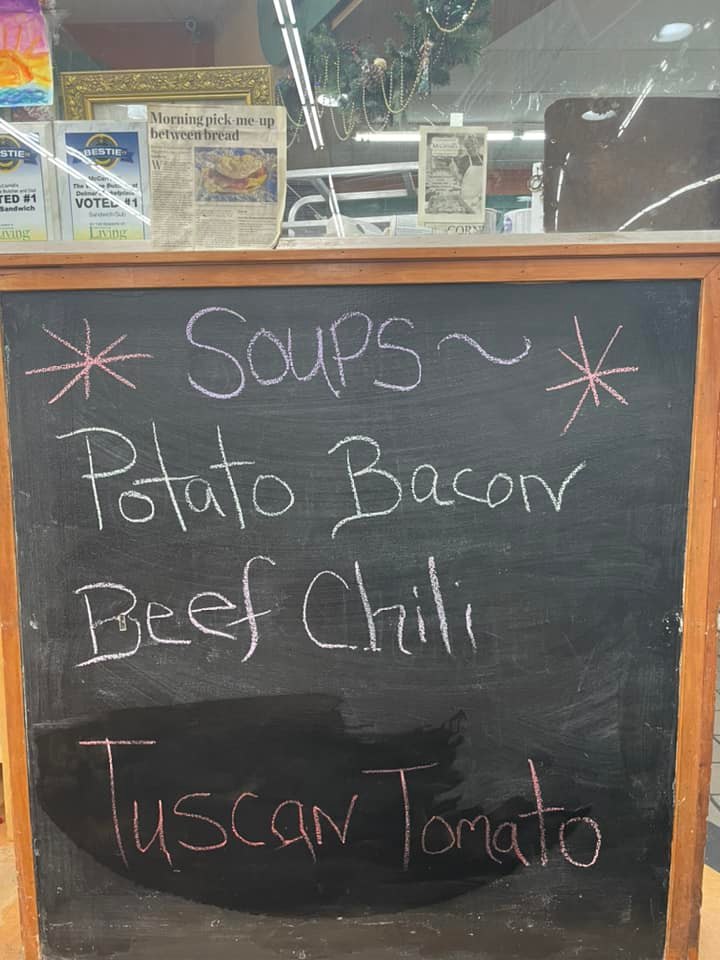 Morning pick-me-up
between bread
BESTIE
VOTED #1
Sandwich/Sub
Living
TED #1
Sandwich
Living
CORN
SOUPS~
Potato Bacon
Beef Chili
Tuscan Tomato